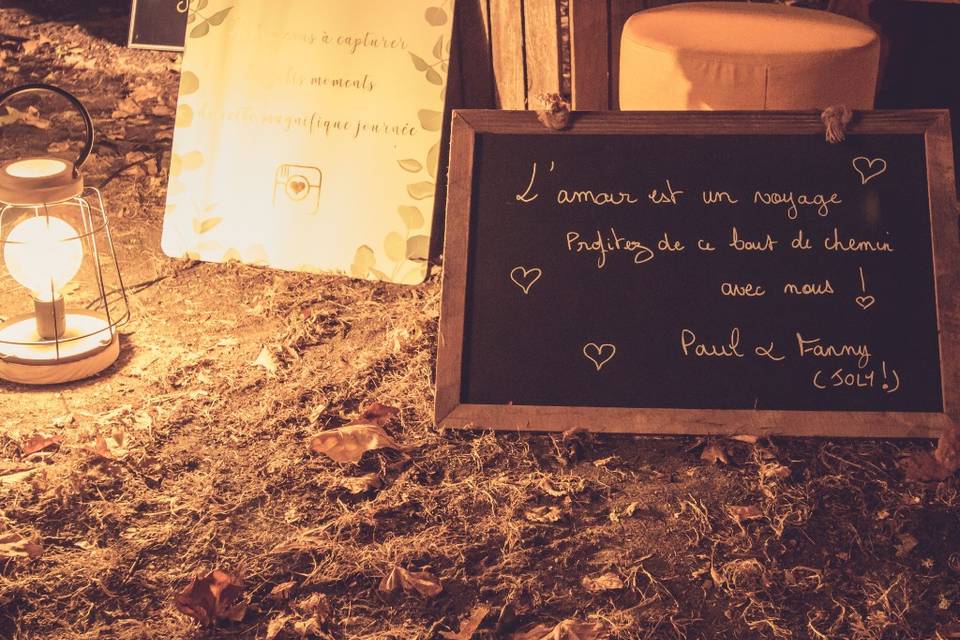 à capturer
moments
magnifique journée
L'amour est un voyage
Profitez de ce bout de chemin
avec nous !
Paul & Fanny
(JOLY !)